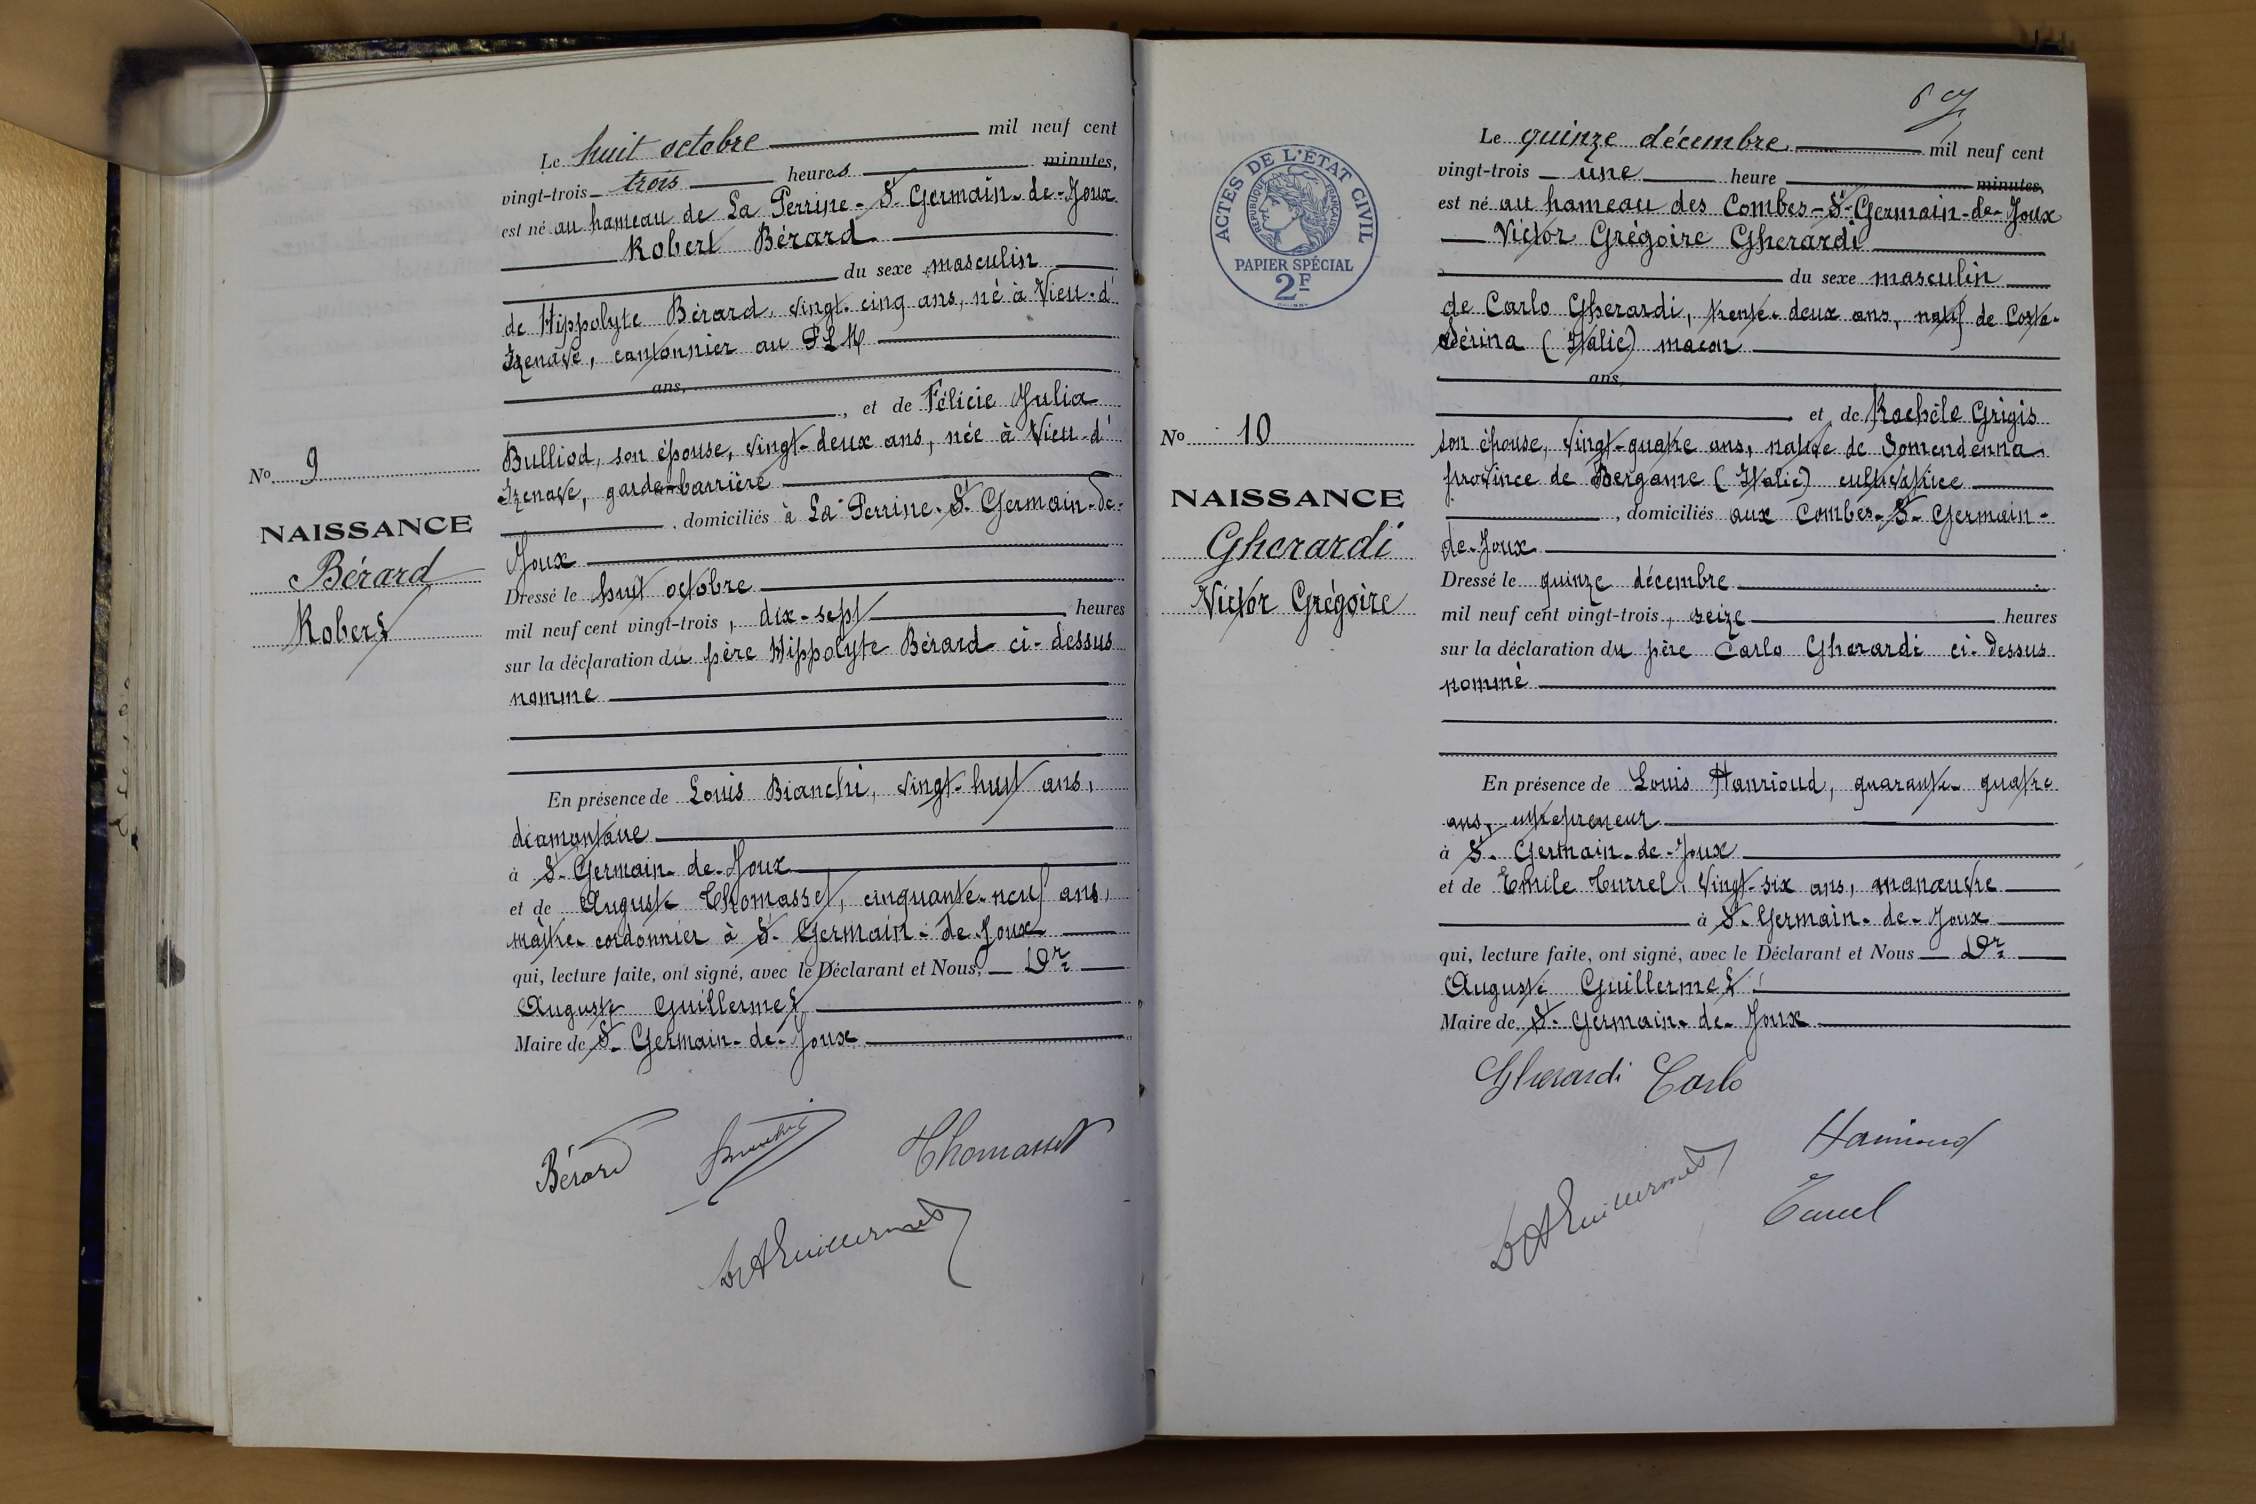 Le huit octobre mil neuf cent
vingt-trois trois heures minutes,
est né au hameau de La Perrine - St Germain-de-Joux
Robert Bérard
du sexe masculin
de Hippolyte Bérard, vingt-cinq ans, né à Vieu-d'
Izenave, cantonnier au PLM
ans,
, et de Félicie Julia
Bulliod, son épouse, vingt-deux ans, née à Vieu-d'
Izenave, garde-barrière
, domiciliés à La Perrine-St Germain-de-
Joux
Dressé le huit octobre
mil neuf cent vingt-trois, dix-sept heures
sur la déclaration du père Hippolyte Bérard ci-dessus
nommé
En présence de Louis Bianchi, vingt-huit ans,
diamantaire
à St Germain-de-Joux
et de Auguste Thomasset, cinquante-neuf ans,
maître-cordonnier à St Germain-de-Joux
qui, lecture faite, ont signé, avec le Déclarant et Nous, Dr
Auguste Guillermet
Maire de St Germain-de-Joux
No 9
NAISSANCE
Bérard
Robert
Bérard Bianchi Thomasset
Dr A Guillermet
ACTES DE L'ÉTAT CIVIL
RÉPUBLIQUE FRANÇAISE
PAPIER SPÉCIAL
2F
No 10
NAISSANCE
Gherardi
Victor Grégoire
Le quinze décembre mil neuf cent
vingt-trois une heure minutes,
est né au hameau des Combes-St-Germain-de-Joux
Victor Grégoire Gherardi
du sexe masculin
de Carlo Gherardi, trente-deux ans, natif de Costa-
Sérina (Italie) maçon
ans,
et de Rachèle Grigis
son épouse, vingt-quatre ans, native de Somendenna
province de Bergame (Italie) cultivatrice
, domiciliés aux Combes-St-Germain-
de-Joux
Dressé le quinze décembre
mil neuf cent vingt-trois, seize heures
sur la déclaration du père Carlo Gherardi ci-dessus
nommé
En présence de Louis Hanrioud, quarante-quatre
ans, entrepreneur
à St-Germain-de-Joux
et de Emile Turrel, vingt-six ans, manœuvre
à St-Germain-de-Joux
qui, lecture faite, ont signé, avec le Déclarant et Nous Dr
Auguste Guillermet
Maire de St-Germain-de-Joux
Gherardi Carlo
Hanrioud
Dr A Guillermet
Turrel